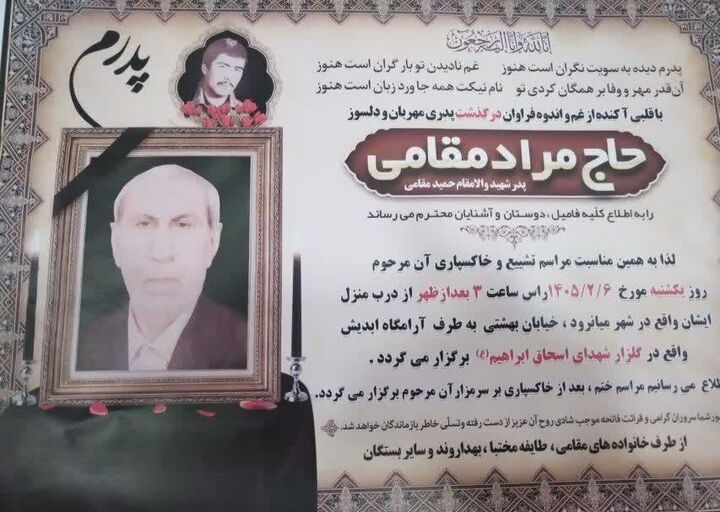 انا لله و انا الیه راجعون
پدرم
پدرم دیده به سویت نگران است هنوز غم نادیدن تو بار گران است هنوز
آن قدر مهر و وفا بر همگان کردی تو نام نیکت همه جا ورد زبان است هنوز
با قلبی آکنده از غم و اندوه فراوان درگذشت پدری مهربان و دلسوز
حاج مراد مقامی
پدر شهید والامقام حمید مقامی
را به اطلاع کلیه فامیل ، دوستان و آشنایان محترم می رساند
لذا به همین مناسبت مراسم تشییع و خاکسپاری آن مرحوم
روز یکشنبه مورخ ۱۴۰۵/۲/۶ راس ساعت ۳ بعدازظهر از درب منزل
ایشان واقع در شهر میانرود ، خیابان بهشتی به طرف آرامگاه ابدیش
واقع در گلزار شهدای اسحاق ابراهیم (ع) برگزار می گردد .
طلاع می رسانیم مراسم ختم ، بعد از خاکسپاری بر سر مزار آن مرحوم برگزار می گردد.
ور شما سروران گرامی و قرائت فاتحه موجب شادی روح آن عزیز از دست رفته و تسلی خاطر بازماندگان خواهد شد.
از طرف خانواده های مقامی ، طایفه مختبا ، بهداروند و سایر بستگان